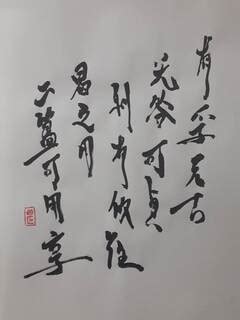 有孚元吉
无咎可貞
利有攸往
曷之用
二簋可用享